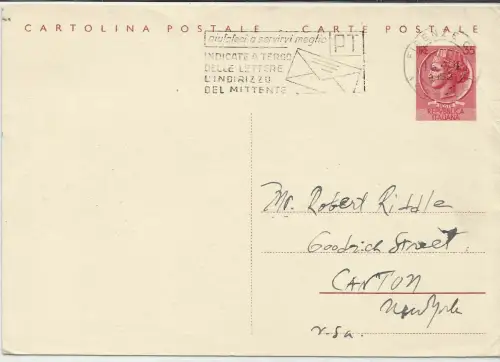 CARTOLINA POSTALE - CARTE POSTALE
aiutateci a servirvi meglio
PT
INDICATE A TERGO
DELLE LETTERE
L'INDIRIZZO
DEL MITTENTE
55
REPVBBLICA
ITALIANA
Mr. Robert Riddle
Goodrich Street
CANTON
New York
U.S.A.